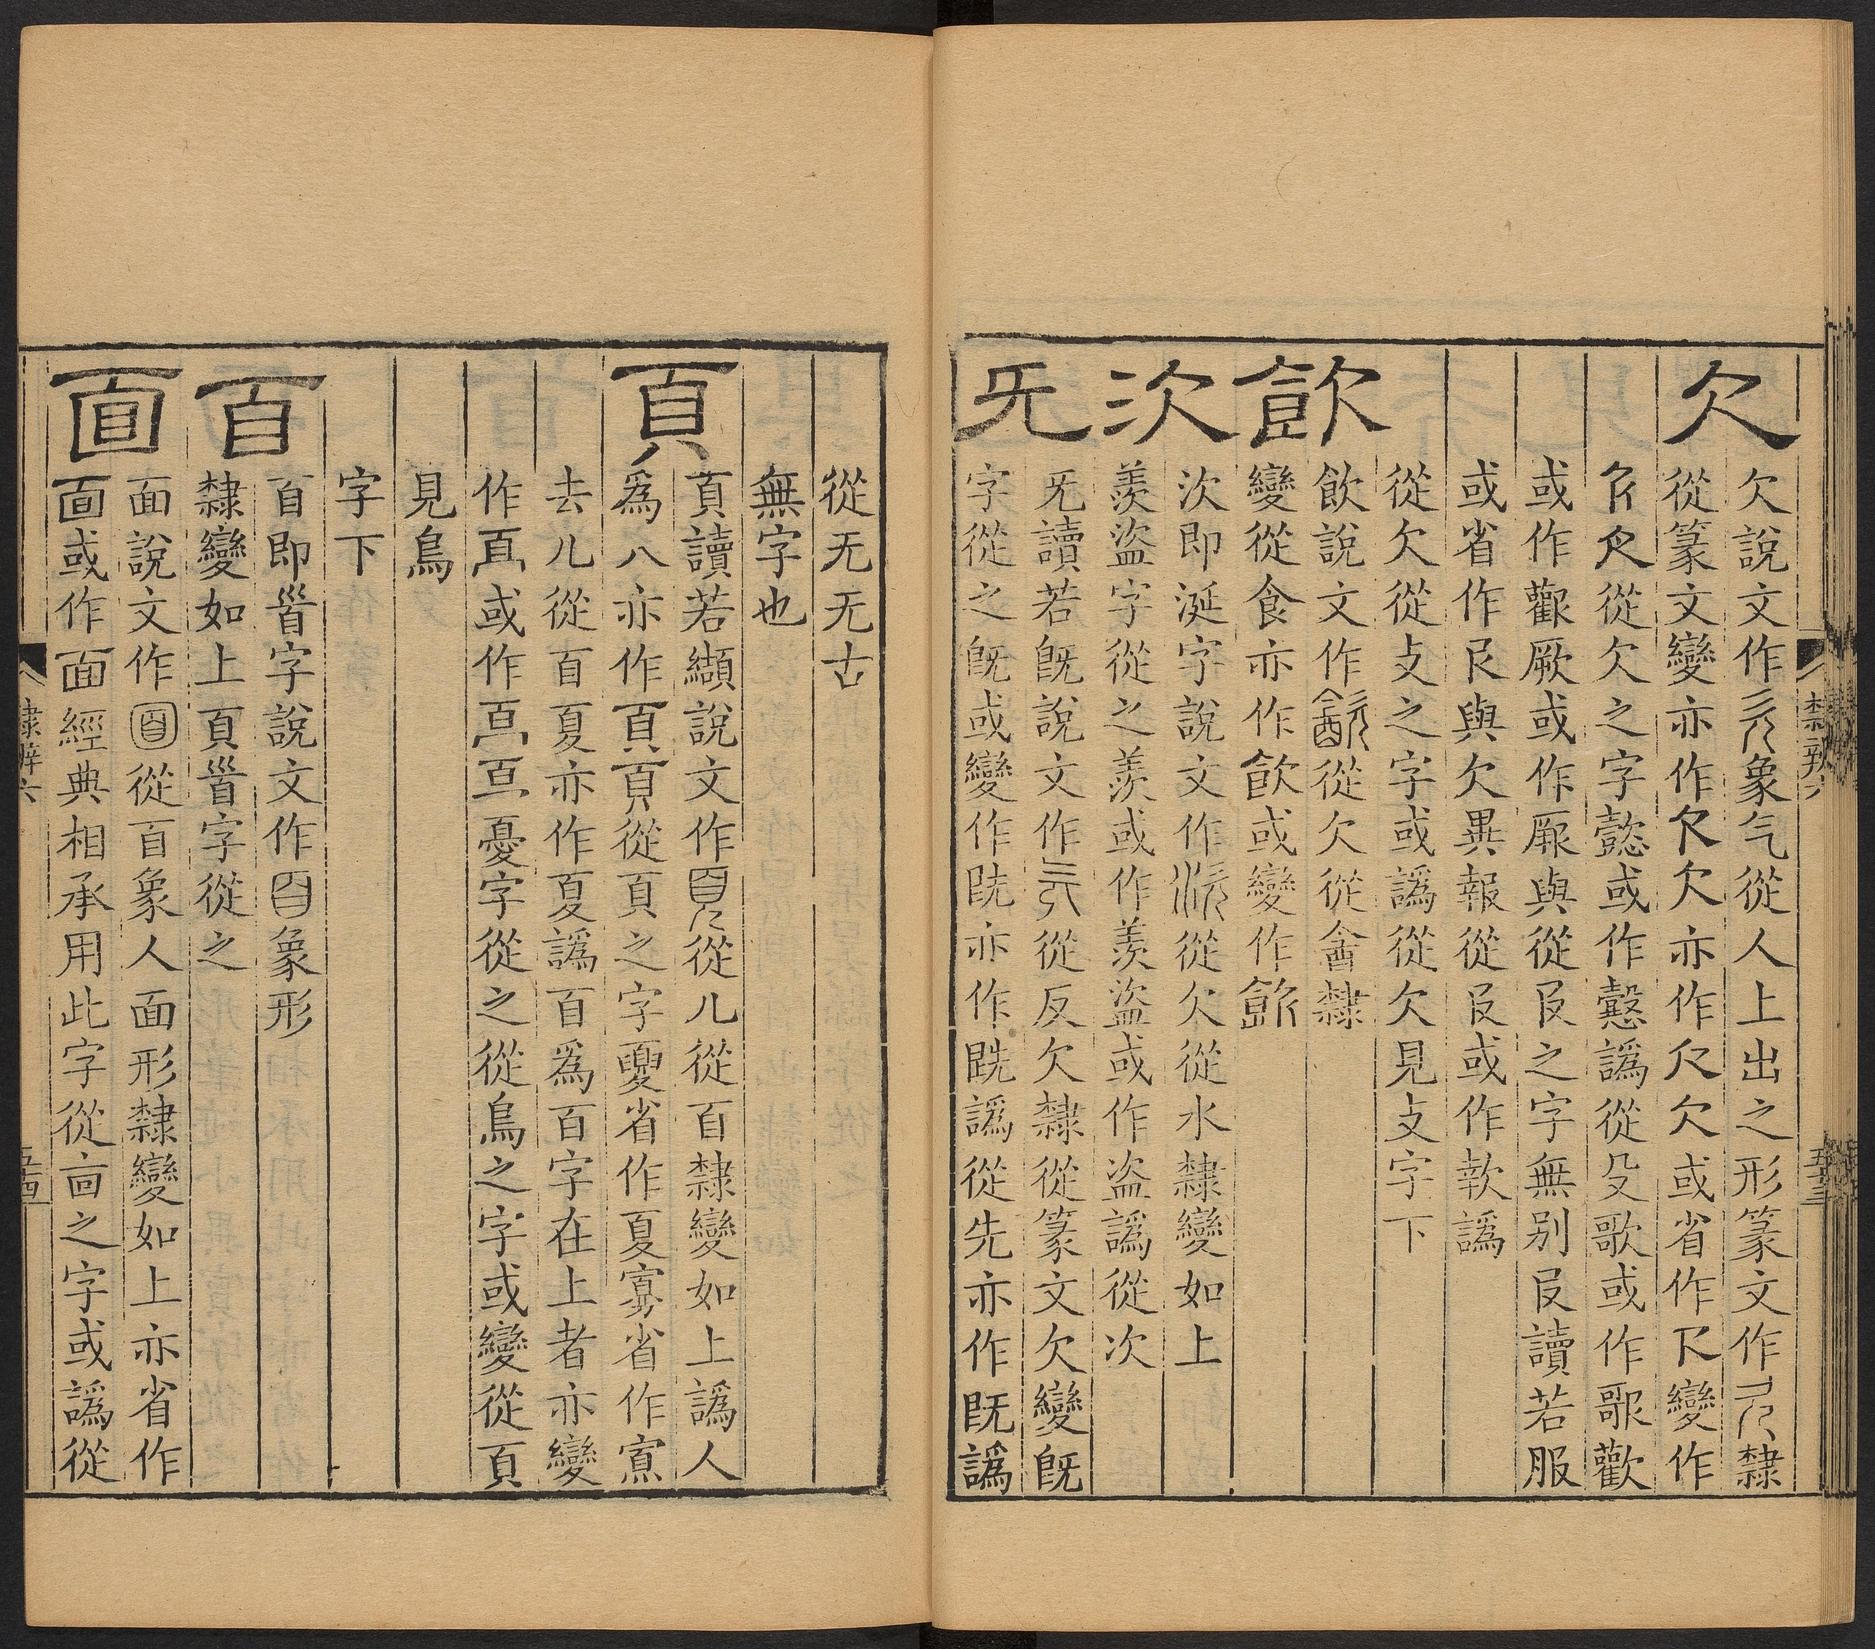 欠
欠說文作象气從人上出之形篆文作隸
從篆文變亦作欠亦作欠或省作變作
從欠之字懿或作懿譌從殳歌或作歌歡
或作歡厥或作厥與從𠬝之字無別𠬝讀若服
或省作與欠異報從𠬝或作軟譌
從欠從攴之字或譌從欠見攴字下
㱃
飲說文作從欠從酓隸
變從食亦作飮或變作
㳄
㳄即涎字說文作從欠從水隸變如上
羨盜字從之羨或作羡盜或作盗譌從次
旡
旡讀若旣說文作從反欠隸從篆文欠變旣
字從之旣或變作亦作譌從先亦作既譌
從无无古
無字也
頁
頁讀若纈說文作從儿從𦣻隸變如上譌人
爲八亦作從頁之字夓省作夏寡省作
去儿從𦣻夏亦作夏譌𦣻爲百字在上者亦變
作或作憂字從之從鳥之字或變從頁
見鳥
字下
𦣻
𦣻即𩠐字說文作象形
隸變如上頁𩠐字從之
面
面說文作從𦣻象人面形隸變如上亦省作
或作面經典相承用此字從㐭之字或譌從
隸辨六
五十三
隸辨六
五十四